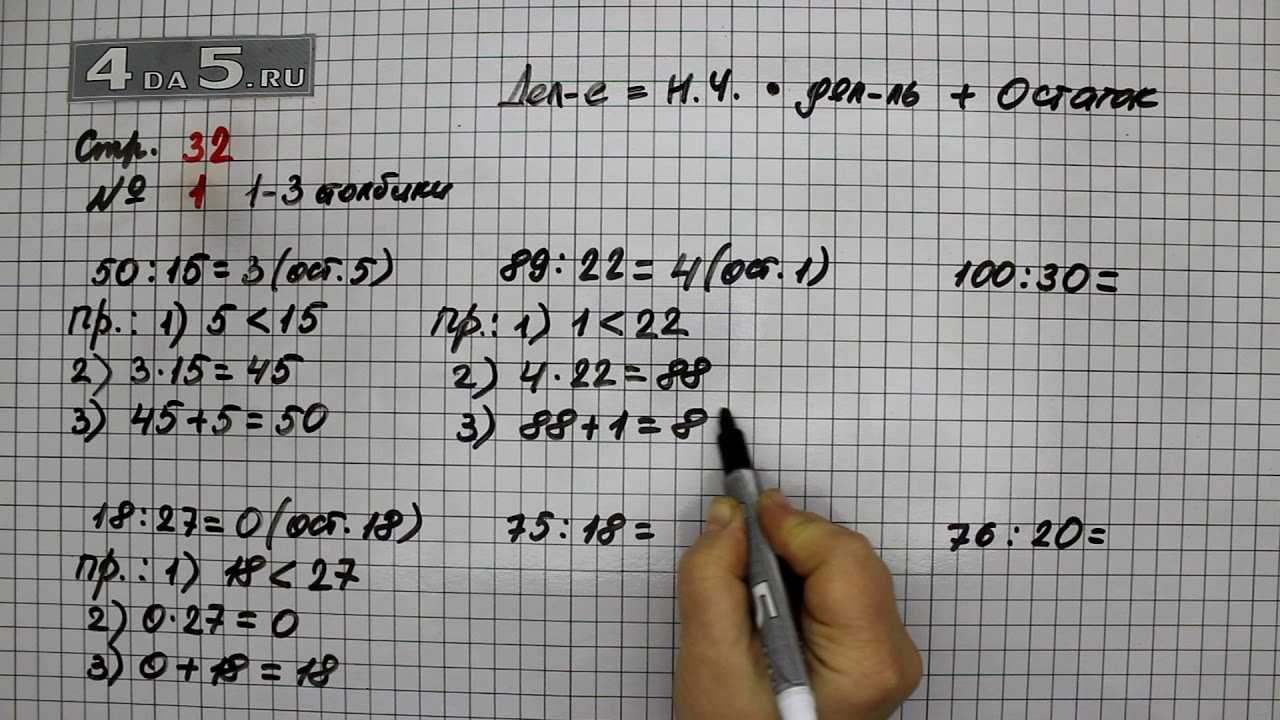 4 DA 5.RU
Дел-е = Н.Ч. • дел-ль + Остаток
Стр. 32
№ 1 1-3 столбики
50:15=3(ост.5)
89:22=4(ост.1)
100:30=
пр.: 1) 5<15
2) 3·15=45
3) 45+5=50
пр.: 1) 1<22
2) 4·22=88
3) 88+1=8
18:27=0(ост.18)
75:18=
76:20=
пр.: 1) 18<27
2) 0·27=0
3) 0+18=18